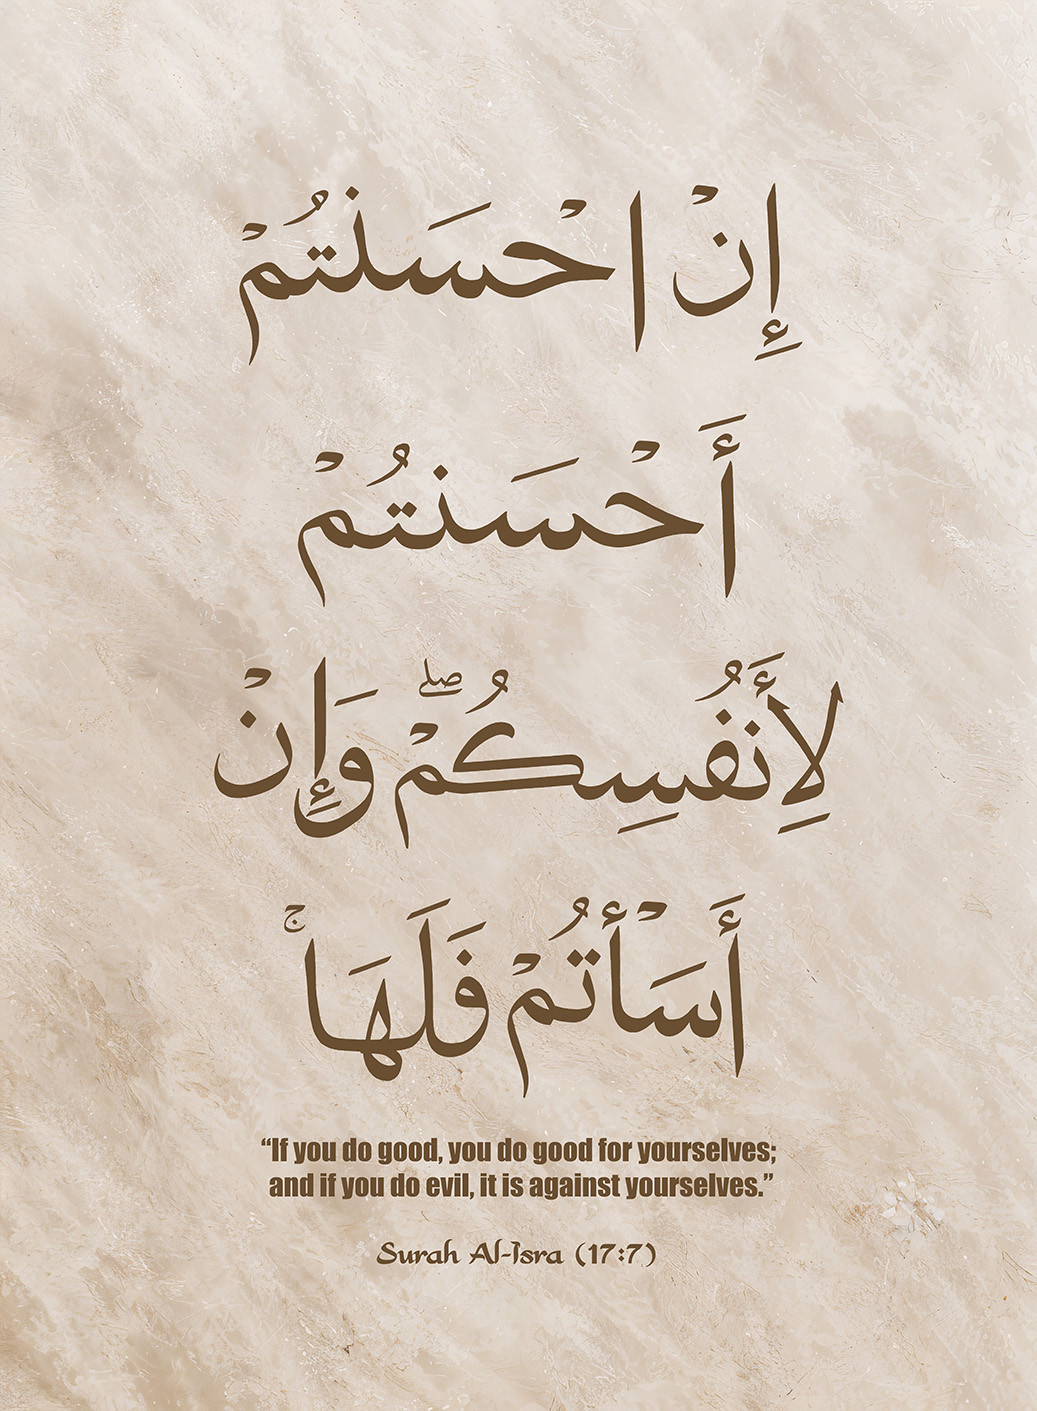 إِنْ احْسَنتُمْ
أَحْسَنتُمْ
لِأَنفُسِكُمْ ۖ وَإِنْ
أَسَأْتُمْ فَلَهَا ۚ
“If you do good, you do good for yourselves;
and if you do evil, it is against yourselves.”
Surah Al-Isra (17:7)